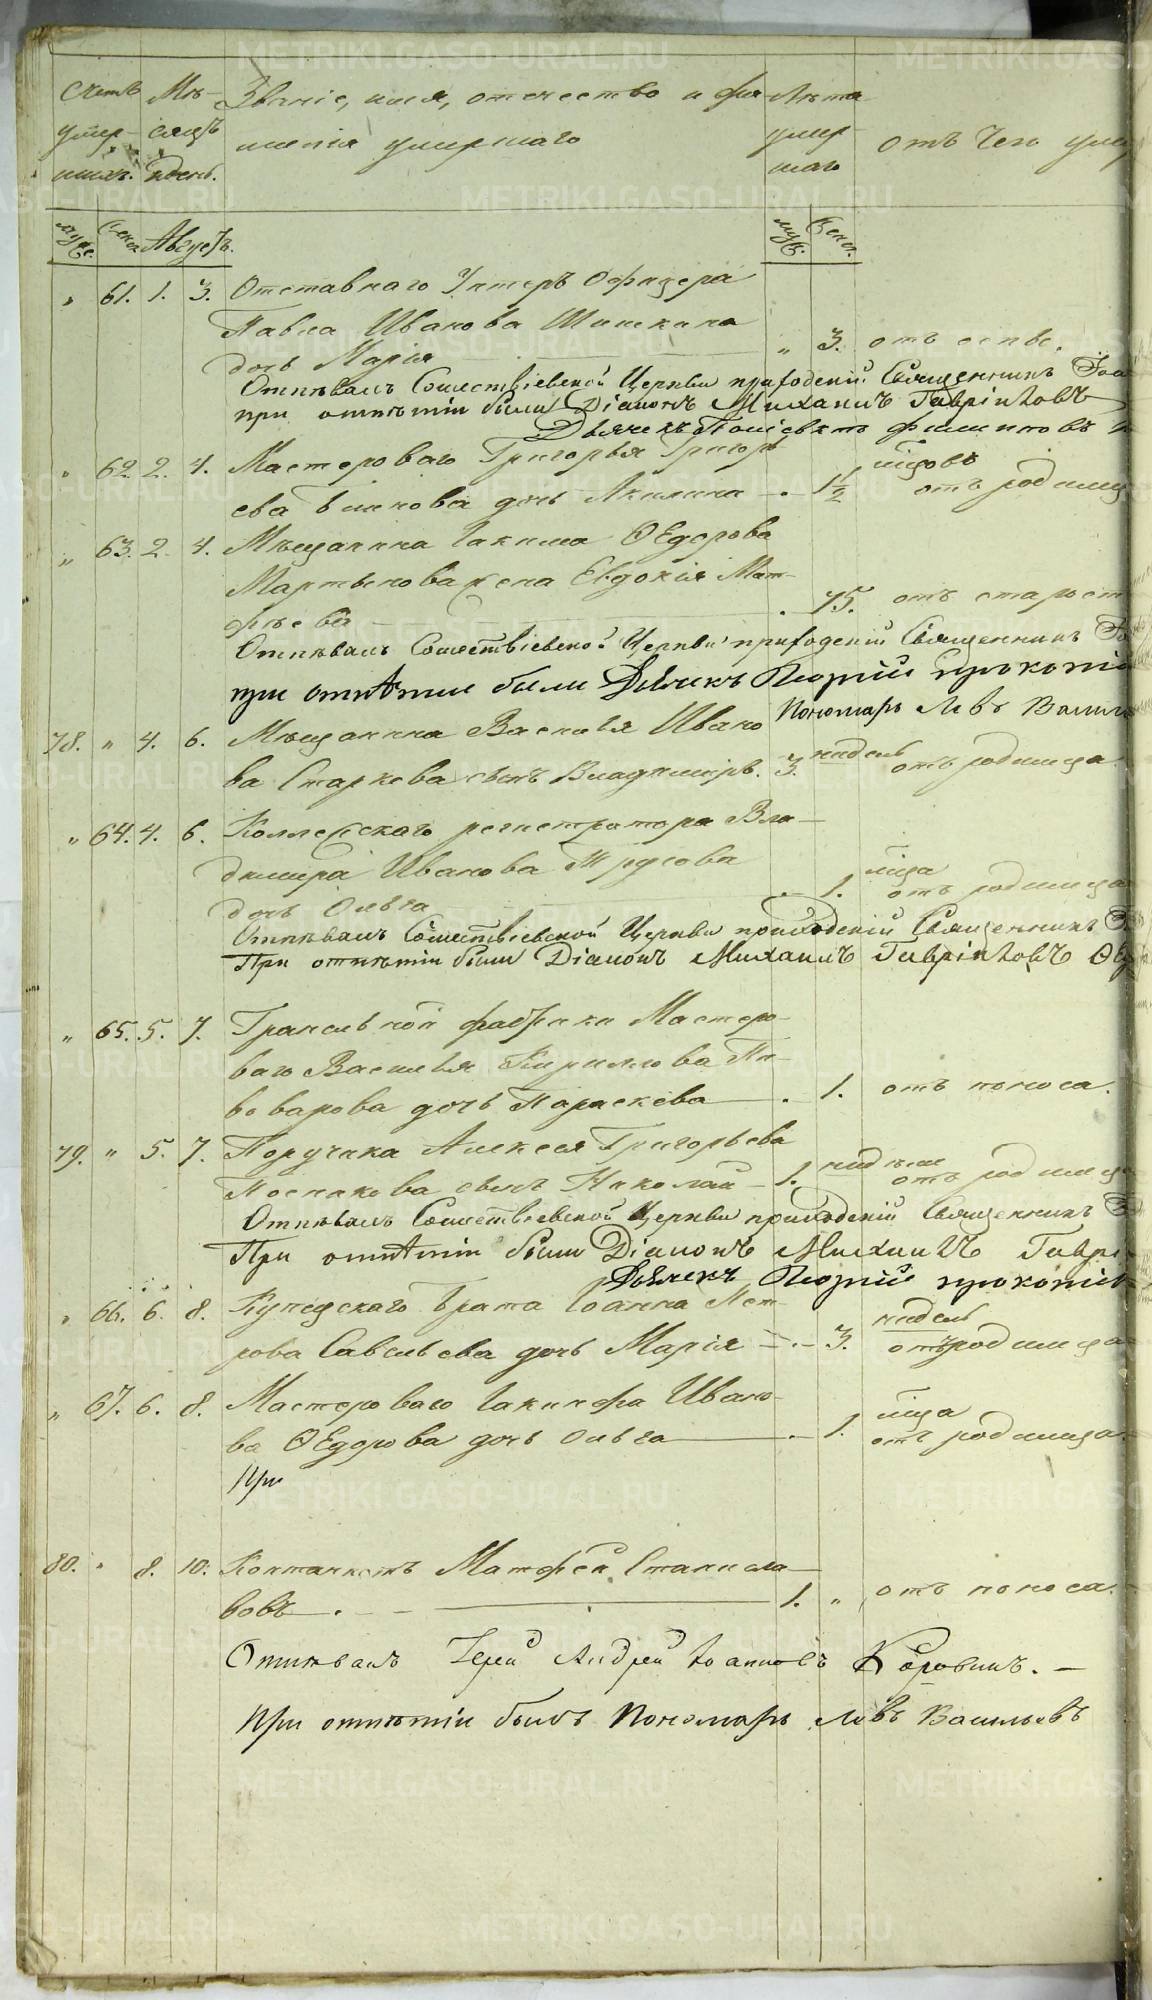 Счетъ Мѣ- Званіе, имя, отчество и фа- Лѣта
умер- сяцъ милія умершаго умер- отъ чего умер
шихъ. и день. шаго
муж. женск. Августъ. муж. женск.
„ 61. 1. 3. Отставнаго Унтеръ Офицера
Павла Иванова Шишкина
дочь Марія „ 3. отъ оспы.
Отпѣвалъ Сошествіевской Церкви приходскій Священникъ
при отпѣтіи были Діаконъ Михаилъ Гавріиловъ
Дьячекъ Філиповъ
„ 62. 2. 4. Мастероваго Григорья Григорь
ева дочь Акилина 1 1/2 мцовъ отъ родимца
„ 63. 2. 4. Мѣщанина Іакима Ѳедорова
Мартынова жена Евдокія Мат-
фѣева 75. отъ старост
Отпѣвалъ Сошествіевской Церкви приходскій Священникъ
при отпѣтіи были Дьячекъ Георгій Прокопіе
Пономарь Левъ Василь
78. „ 4. 6. Мѣщанина Василья Ивано
ва Старкова сынъ Владимиръ. 3. недель отъ родимца
„ 64. 4. 6. Коллежскаго регистратора Вла-
димира Иванова
дочь Ольга 1. мца отъ родимца
Отпѣвалъ Сошествіевской Церкви приходскій Священникъ
При отпѣтіи были Діаконъ Михаилъ Гавріиловъ
„ 65. 5. 7. Гранильной фабрики Мастеро-
ваго Василья Кирилова Пи-
воварова дочь Параскева 1. отъ поноса.
79. „ 5. 7. Поручика Алексея Григорьева
Поснакова сынъ Николай 1. недѣли отъ родимца
Отпѣвалъ Сошествіевской Церкви приходскій Священникъ
При отпѣтіи были Діаконъ Михаилъ Гаврі
Дьячекъ Георгій Прокопіе
„ 66. 6. 8. Купецскаго брата Іоанна Пет-
рова Савельева дочь Марія 3. недель отъ родимца
„ 67. 6. 8. Мастероваго Іакинфа Ивано-
ва Ѳедорова дочь Ольга 1. мца отъ родимца.
При
80. „ 8. 10. Кантонистъ Матфей Станисла-
вовъ 1. „ отъ поноса.
Отпѣвалъ Іерей Андрей Іоанновъ Коровинъ.
При отпѣтіи былъ Пономарь Левъ Васильевъ
METRIKI.GASO-URAL.RU